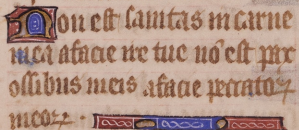 Non est sanitas in carne
mea a facie ire tue nō est pax
ossibus meis a facie peccatoꝝ
meoꝝ.